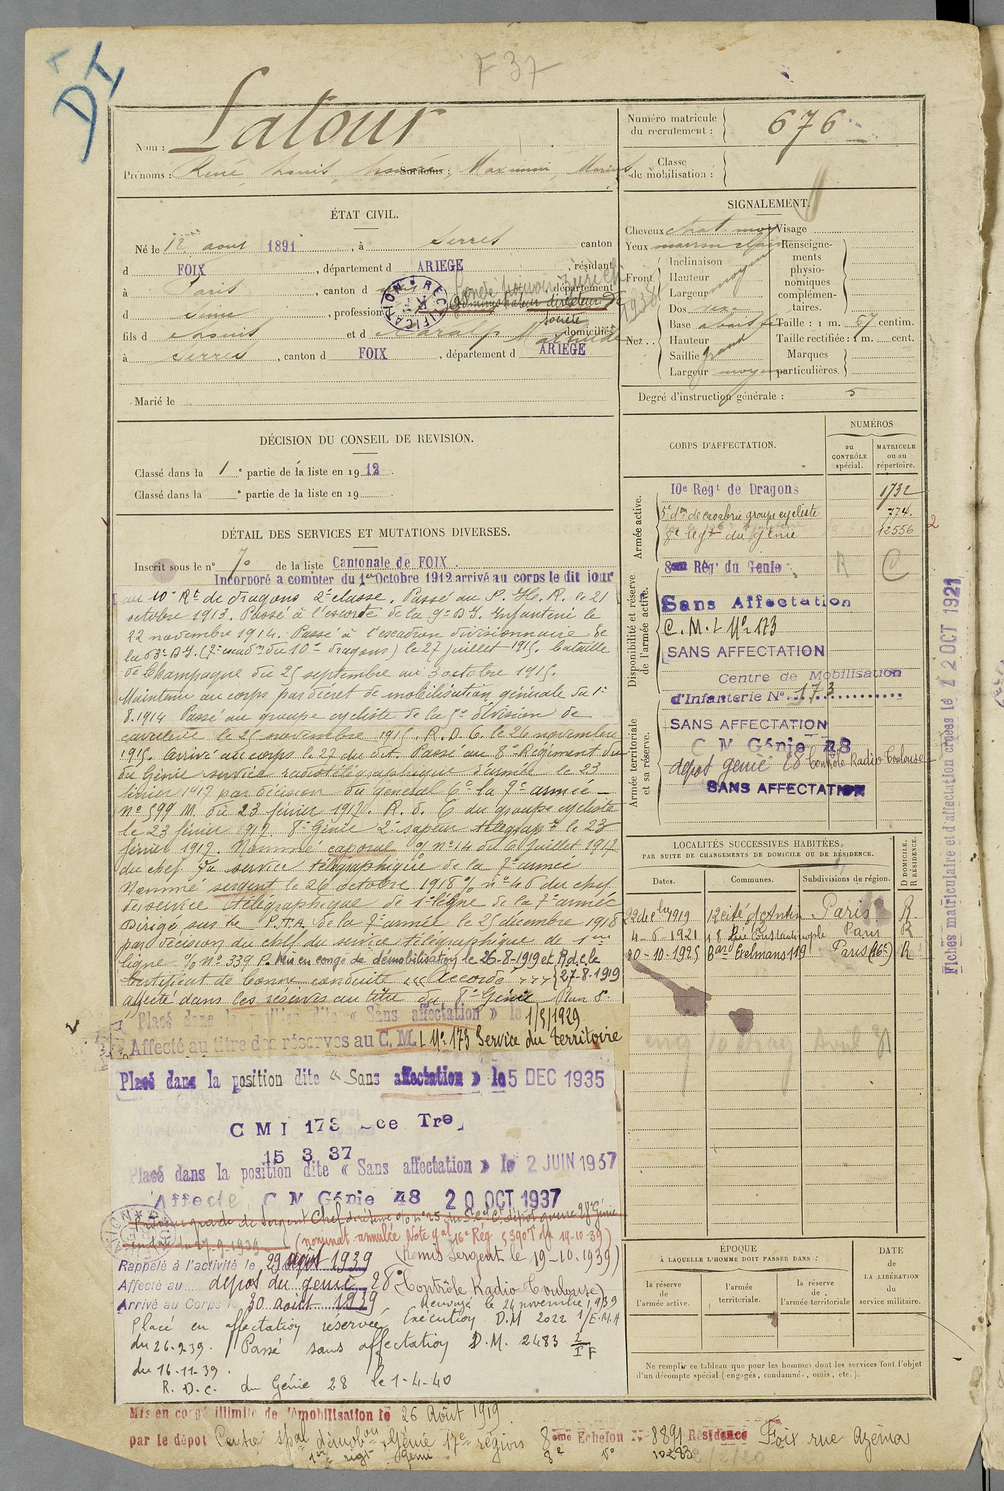 F 37
DI
Nom : Latour
Prénoms : René Louis Surnoms : Maximin, Marius
Numéro matricule du recrutement : 676
Classe de mobilisation :
ÉTAT CIVIL.
Né le 12 août 1891, à Serres canton
d FOIX, département d ARIEGE, résidant
à Paris, canton d , département
d Seine, profession d administrateur directeur de
société
fils d Louis et d Mathilde domiciliés
à Serres, canton d FOIX, département d ARIEGE
RECTIFICATION
Marié le
SIGNALEMENT.
Cheveux chat. moy
Yeux marron clair
Front Inclinaison
Hauteur moyen
Largeur
Nez Dos
Base
Hauteur
Saillie grand
Largeur moyen
Visage
Renseignements physionomiques complémentaires.
Taille : 1 m. 67 centim.
Taille rectifiée : 1 m. cent.
Marques particulières.
Degré d'instruction générale : 5
DÉCISION DU CONSEIL DE REVISION.
Classé dans la 1e partie de la liste en 1912.
Classé dans la e partie de la liste en 19
DÉTAIL DES SERVICES ET MUTATIONS DIVERSES.
Inscrit sous le n° 70 de la liste Cantonale de FOIX.
Incorporé a compter du 1er Octobre 1912 arrivé au corps le dit jour
au 10e Rt de dragons 2e classe. Passé au P. H. R. le 21
octobre 1913. Passé à l'escorte de la 9e D.I. Infanterie le
22 novembre 1914. Passé à l'escadron divisionnaire de
le 27 juillet 1915. Bataille
de Champagne du 25 septembre au 3 octobre 1915.
Maintenu au corps par décret de mobilisation générale du 1er
8.1914 Passé au groupe cycliste de la 5e division de
cavalerie le 25 novembre 1915. R.D.C. le 26 novembre
1915. arrivé au corps le 27 du dit. Passé au 8e Régiment du
du Génie service radiotélégraphique d'armée le 23
février 1917 par décision du Général Ct la 7e armée
n° 599 M. du 23 février 1917. R. d. C du groupe cycliste
le 23 février 1917. 8e Génie 2e sapeur télégrapte le 23
février 1917. Nommé caporal o/ n° 14 du 6 juillet 1917
du chef du service télégraphique de la 7e armée
Nommé sergent le 26 octobre 1918 o/ n° 48 du chef
de service télégraphique de 1e ligne de la 7e armée
Dirigé sur le P.T.A. de la 7e armée le 25 décembre 1918
par décision du chef du service télégraphique de 1ère
ligne o/o n° 339 P. Mis en congé de démobilisation le 26-8-1919 et R.d.c. le
Certificat de bonne conduite "Accordé" 27-8-1919
affecté dans les réserves au titre du 8e Génie
Placé dans la position dite « Sans affectation » le 1/5/1929
Affecté au titre des réserves au C.M.I. N° 173 Service du territoire
Placé dans la position dite « Sans affectation » le 5 DEC 1935
C M I 173 ce Tre
15 3 37
Placé dans la position dite « Sans affectation » le 2 JUIN 1937
Affecté C M Génie 48 20 OCT 1937
(nominat. annulée Note Gal 16e Rég. 5390 T du 19-10-39)
(Remis Sergent le 19-10-1939)
Rappelé à l'activité le 29 août 1939
Affecté au depot du genie 28e (Contrôle Radio Toulouse)
Arrivé au Corps le 30 août 1939 Renvoyé le 24 novembre 1939
Placé en affectation réservée Exécution D.M 2022 1/E.M.A
du 26-9-39. Passé sans affectation D.M. 2483 1/I F
du 16-11-39.
R. D. C. du Génie 28 le 1-4-40
Mis en congé illimité de démobilisation le 26 Août 1919
par le dépôt Centre spal démobon Génie 17e région 8eme Echelon N° 8891 Résidence Foix rue Azéma
CORPS D'AFFECTATION.
NUMÉROS
au CONTRÔLE spécial.
MATRICULE ou au répertoire.
Armée active.
10e Regt de Dragons 1732
5e don de cavalerie groupe cycliste 774.
8e Regt du Génie 12556
Disponibilité et réserve de l'armée active.
8eme Régt du Genie R C
Sans Affectation
C.M.I N° 173
SANS AFFECTATION
Centre de Mobilisation
d'Infanterie N° 173
Armée territoriale et sa réserve.
SANS AFFECTATION
C M Génie 48
depot genie 28 Contrôle Radio Toulouse
SANS AFFECTATION
LOCALITÉS SUCCESSIVES HABITÉES,
PAR SUITE DE CHANGEMENTS DE DOMICILE OU DE RÉSIDENCE.
Dates. Communes. Subdivisions de région. D DOMICILE. R RÉSIDENCE.
22 décbre 1919 12 cité d'Antin Paris R
4-6-1921 18 Rue Constantinople Paris R
20-10-1925 Bard Exelmans 119 Paris (16e) R
ÉPOQUE
À LAQUELLE L'HOMME DOIT PASSER DANS :
la réserve de l'armée active.
l'armée territoriale.
la réserve de l'armée territoriale
DATE de LA LIBÉRATION du service militaire.
Ne remplir ce tableau que pour les hommes dont les services font l'objet
d'un décompte spécial (engagés, condamnés, omis, etc.).
Fiches matriculaire et d'affectation créées le 22 OCT 1921